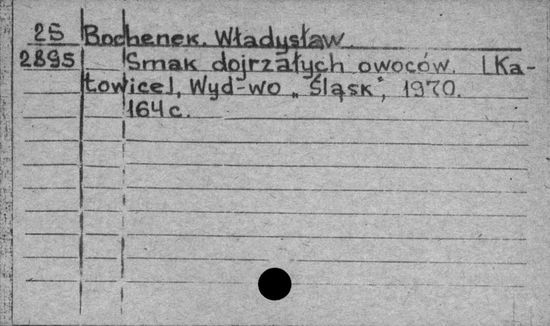 25 Bochenek. Władysław.
2895 Smak dojrzałych owoców. [Ka-
towice], Wyd-wo „Śląsk", 1970.
164 с.